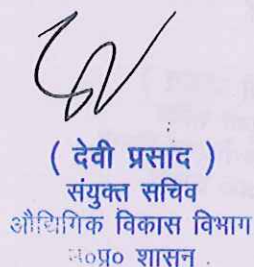 ( देवी प्रसाद )
संयुक्त सचिव
औद्योगिक विकास विभाग
म०प्र० शासन